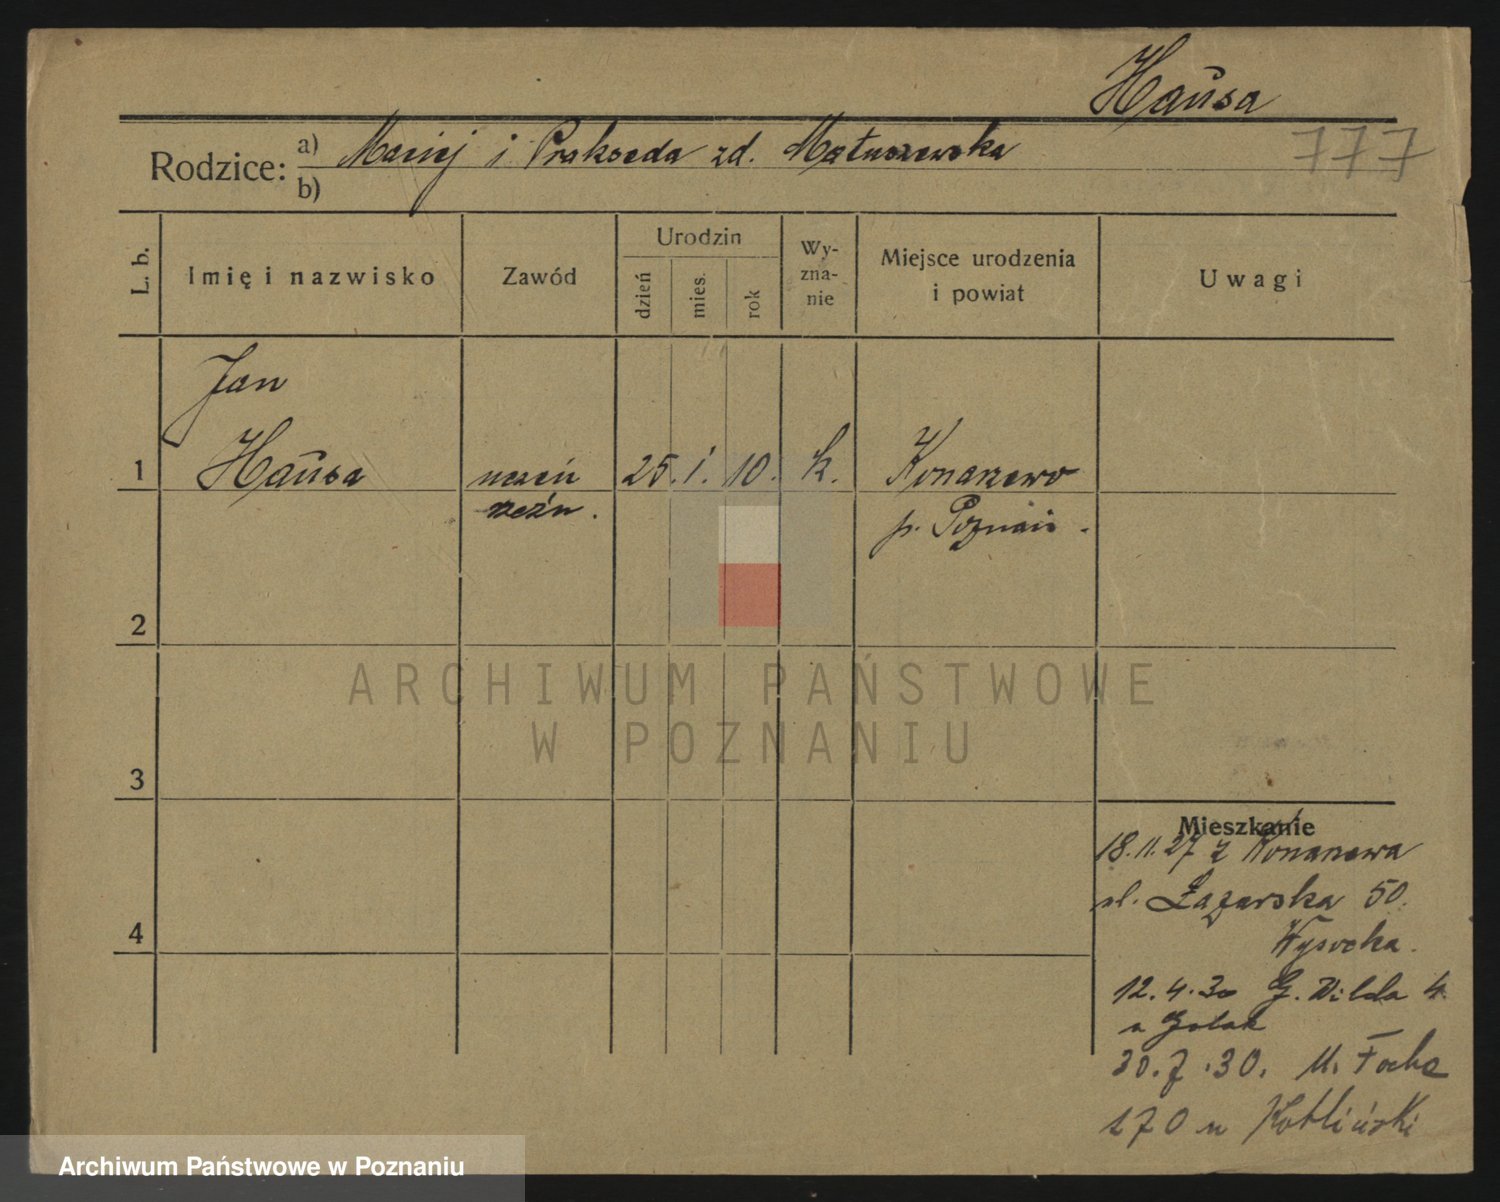 Hausa
777
Rodzice: a) Maciej i Prakseda zd. Matuszewska
b)
L. b.
Imię i nazwisko
Zawód
Urodzin
dzień
mies.
rok
Wy-
zna-
nie
Miejsce urodzenia
i powiat
Uwagi
Jan
1 Hausa uczeń 25. 1. 10. k. Konarzewo
rzeźn. p. Poznań.
2
ARCHIWUM PAŃSTWOWE
W POZNANIU
3
Mieszkanie
18.11.27 z Konarzewa
ul. Łazarska 50.
Wysocka.
4
12.4.30 G. Wilda 4
u
30.7.30. M. Focha
170 u Kotliński
Archiwum Państwowe w Poznaniu